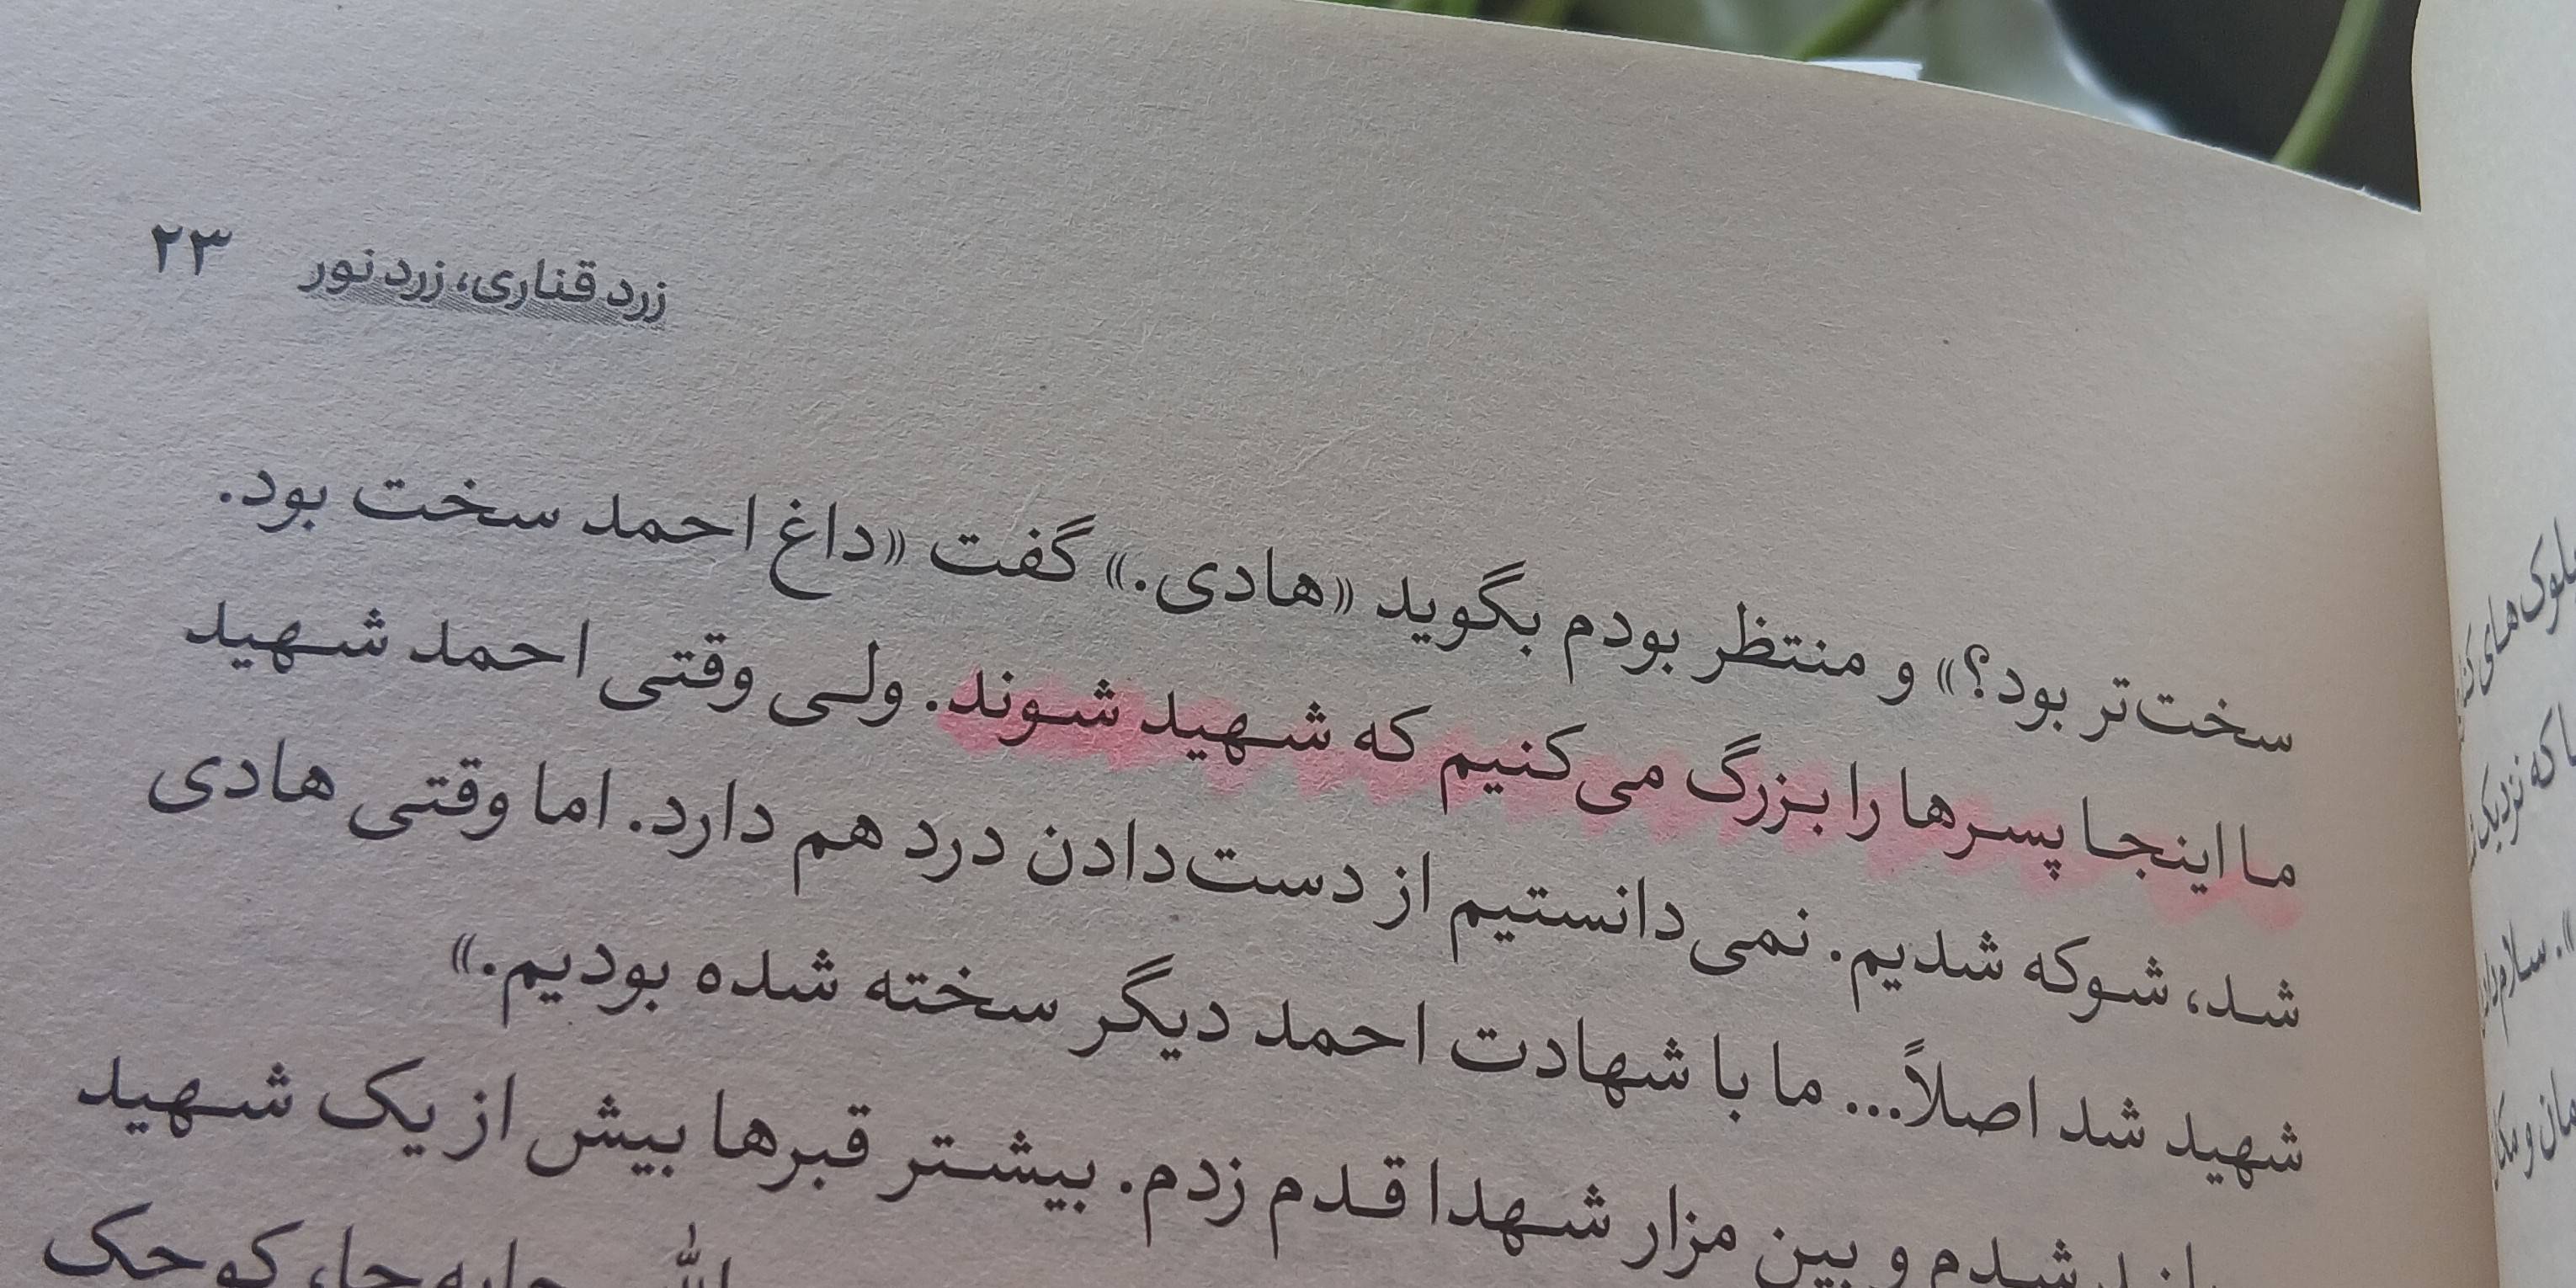 زرد قناری، زرد نور ۲۳
سخت‌تر بود؟» و منتظر بودم بگوید «هادی.» گفت «داغ احمد سخت بود.
ما اینجا پسرها را بزرگ می‌کنیم که شهید شوند. ولی وقتی احمد شهید
شد، شوکه شدیم. نمی‌دانستیم از دست‌دادن درد هم دارد. اما وقتی هادی
شهید شد اصلاً... ما با شهادت احمد دیگر سخته شده بودیم.»
شدم و بین مزار شهدا قدم زدم. بیشتر قبرها بیش از یک شهید
الله جابه‌جا، کوچک